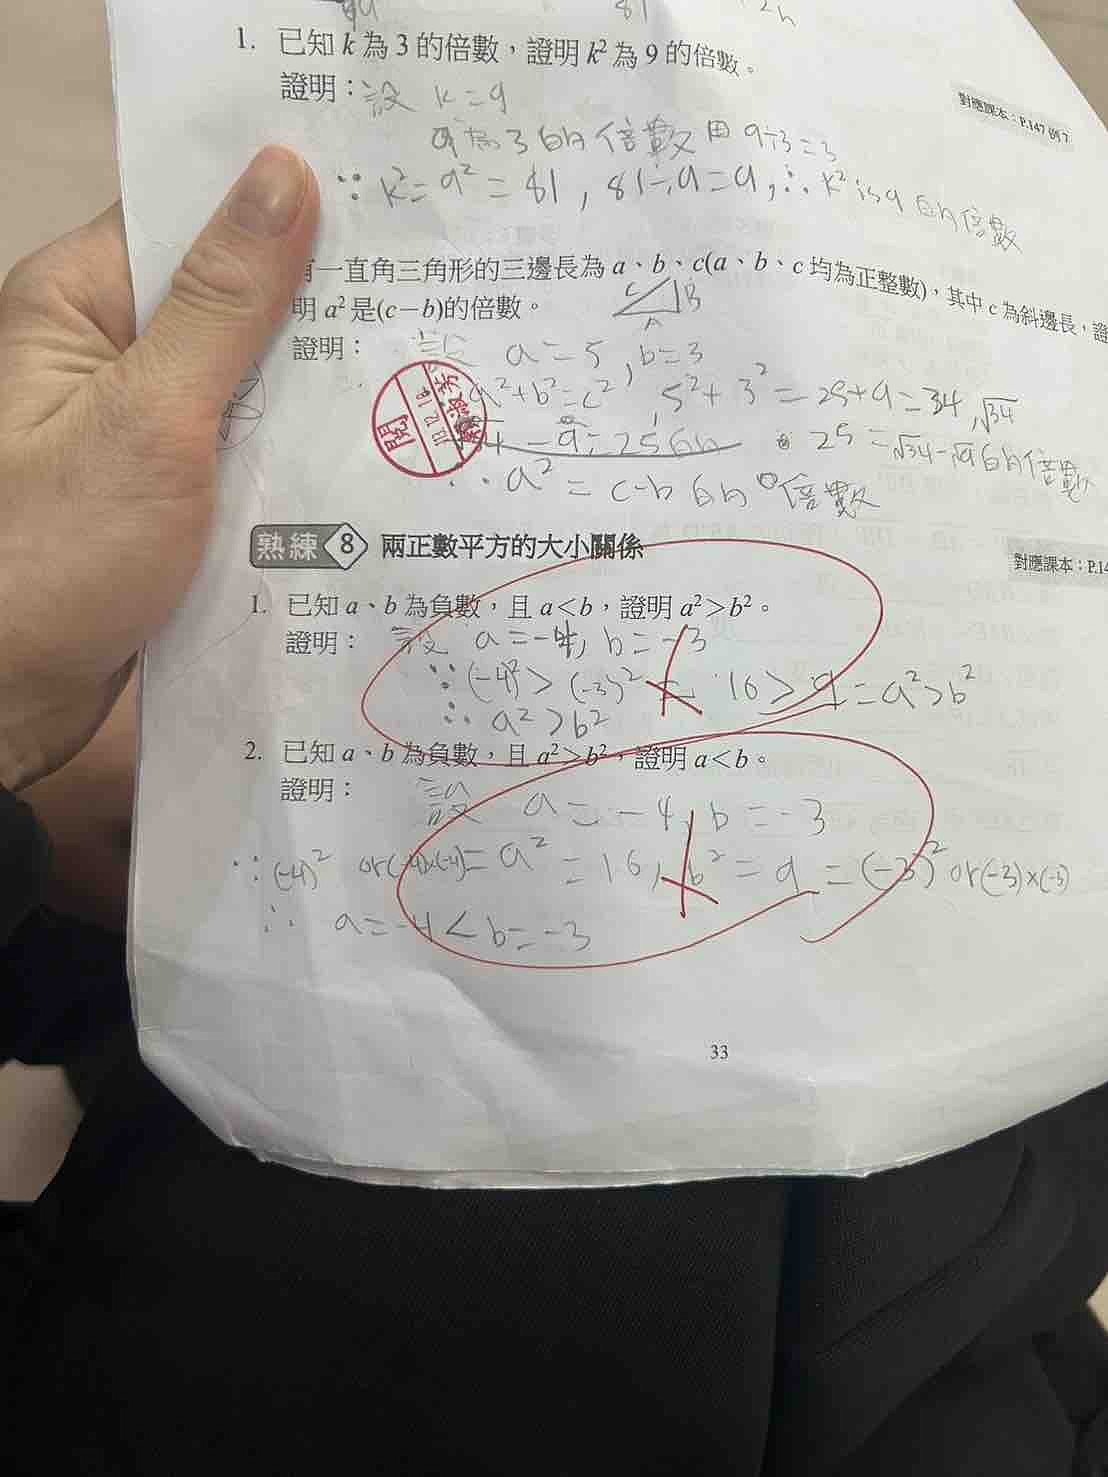 1. 已知 k 為 3 的倍數，證明 k² 為 9 的倍數。
對應課本：P.147 例 7
證明：設 k=9
9為3的倍數 因 9÷3=3
∵ k²=9²=81, 81÷9=9, ∴ k² is 9 的倍數
一直角三角形的三邊長為 a、b、c(a、b、c 均為正整數)，其中 c 為斜邊長，證
明 a² 是(c−b)的倍數。
C B
A
證明：設 a=5, b=3
a²+b²=c², 5²+3²=25+9=34, √34
25=√34-√9的倍數
∴ a² = c-b 的 倍數
閱
熟練 8 兩正數平方的大小關係
對應課本：P.14
1. 已知 a、b 為負數，且 a<b，證明 a²>b²。
證明：設 a=-4, b=-3
∵ (-4)² > (-3)² = 16 > 9 = a²>b²
∴ a²>b²
2. 已知 a、b 為負數，且 a²>b²，證明 a<b。
證明：設 a=-4, b=-3
∵ (-4)² or(-4)x(-4)= a² = 16, b² = 9 = (-3)² or(-3)×(-3)
∴ a=-4 < b=-3
33